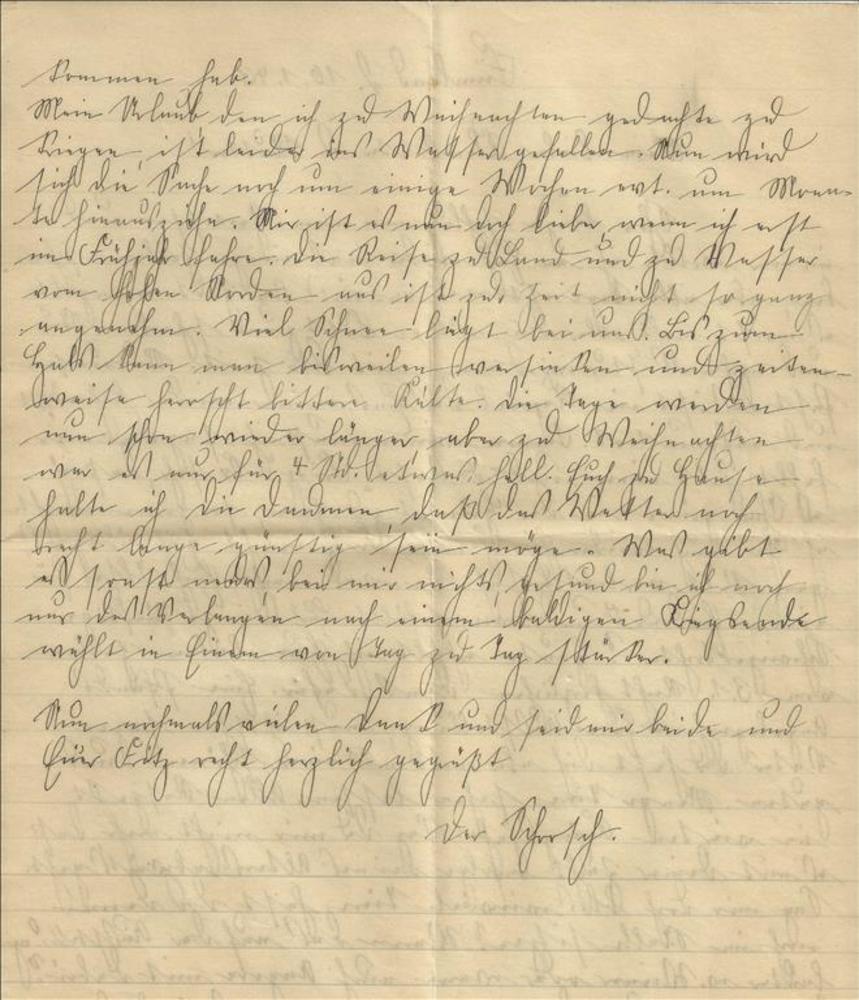 kommen hab.
Mein Urlaub den ich zu Weihnachten gedachte zu
kriegen, ist leider ins Wasser gefallen. Nun wird
sich die Sache noch um einige Wochen evt. um Mona-
te hinausziehn. Mir ist es nun doch lieber, wenn ich erst
im Frühjahr fahre. Die Reise zu Land und zu Wasser
vom hohen Norden aus ist zur Zeit nicht so ganz
angenehm. Viel Schnee liegt bei uns. Bis zum
Hals kann man bisweilen versinken und zeiten-
weise herrscht bittere Kälte. Die Tage werden
nun schon wieder länger, aber zu Weihnachten
war es nur für 4 Std. etwas hell. Euch zu Hause
halte ich die Daumen, daß das Wetter noch
recht lange günstig sein möge. Was gibt
es sonst neues, bei mir nichts, gesund bin ich noch
nur das Verlangen nach einem baldigen Kriegsende
wühlt in Einem von Tag zu Tag stärker.
Nun nochmals vielen Dank und seid mir beide und
Euer Fritz recht herzlich gegrüßt
Der Schorsch.